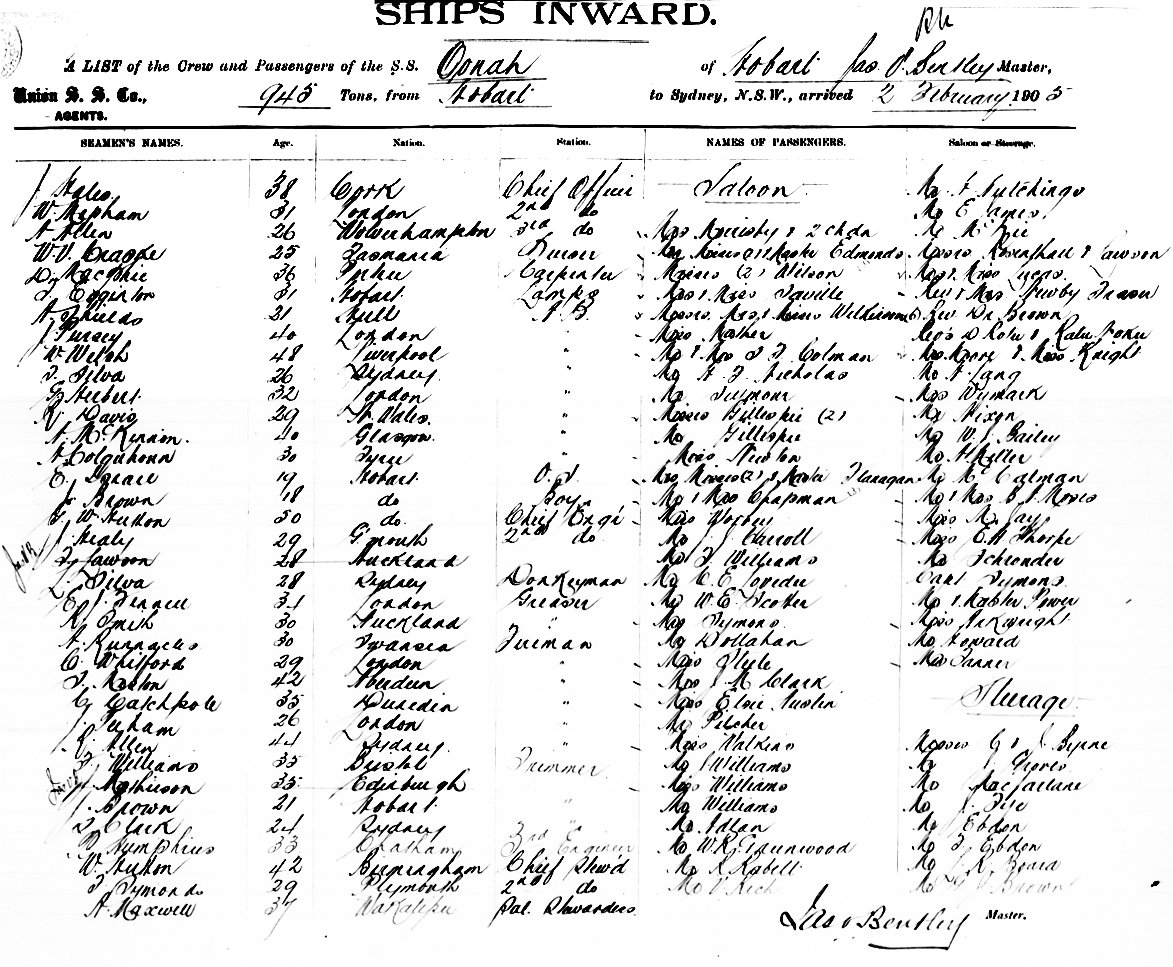 SHIPS INWARD.
A LIST of the Crew and Passengers of the S.S. Oonah of Hobart Jas O. Bentley Master,
Union S. S. Co., 945 Tons, from Hobart to Sydney, N.S.W., arrived 2 February 1905
AGENTS.
SEAMEN'S NAMES. Age. Nation. Station. NAMES OF PASSENGERS. Saloon or Steerage.
J Hales 38 Cork Chief Officer Saloon Mr F Hutchings
W. Mapham 31 London 2nd do Mr Eames
A Allen 26 Wolverhampton 3rd do Mrs & 2 chdn Mr
W. V. Cragge 25 Tasmania Purser Mrs Misses & Master Edmonds Messrs Rosenthall & Lawson
36 Carpenter Misses (2) Wilson Mrs & Miss Lucas
Egginton 31 Hobart Lamps Mrs & Miss Saville Rev & Mrs Newby Fraser
A. Shields 21 Hull A B Messrs Mrs & Misses Wilkinson Rev Dr Brown
J Pursey 40 London " Miss Mather
W. Welsh 48 Liverpool " Mr & Mrs J J Colman Mrs Moore & Miss Knight
J. Silva 26 Sydney " Mr A J Nicholas Mr A Lang
G Herbert 32 London " Mr Mrs Wymark
R Davis 29 N Wales. " Misses Gillespie (2) Mr Nixon
A. McKinnon. 40 Glasgow " Mr Gillespie Mr W. J Bailey
A Colquhoun 30 " Miss Newton Mr A Miller
E. 19 Hobart O. S. Mrs Misses (2) & Master Flanagan Mr Calman
J. Brown 18 do Boy Mr & Mrs Chapman Mr & Mrs Moses
G. W. Hutton 50 do. Chief Engr Miss Miss M. Jay
J Healy 29 G'mouth 2nd do Mr J Carroll Miss E. A Thorpe
J. Lawson 28 Auckland Mr J. Williams Mr Schroeder
L. Silva 28 Sydney Donkeyman Mr C. E. Capt Symons.
E. J. Fennell 34 London Greaser Mr W. E. Mr & Master Power
R. Smith 30 Auckland " Mr Symons. Miss Arkwright
A. 30 Swansea Fireman Mr Dollahan Mr Howard
C. Whitford 29 London " Miss Steele Miss Tanner
J. 42 Aberdeen " Mrs J McClark
C. Catchpole 35 Dunedin " Miss Elsie Austin Steerage.
J. Pegham 26 London " Mr Pilcher
R. Allen 44 Sydney. " Miss Watkins Messrs G & J. Byrne
J. Williams 35 Bristol Trimmer Mr Williams Mr J Groves
Mathieson 35 Edinburgh " Miss Williams Mr Macfarlane
J. Brown 21 Hobart " Mr Williams Mr J.
D. Clark 24 Sydney " Mr Adlan Mr Ebdon
Humphries 33 Chatham 3rd Engineer Mr W. R. Greenwood Mr J. Ebdon
W. Hutton 42 Birmingham Chief Stew'd Mr R Kabell Mr J. R. Board
J. Symonds 29 Plymouth 2nd do Mr V. Rich Mr G J Brown
A. Maxwell 37 Wakatipu Sal. Stewardess
Jas O Bentley Master.